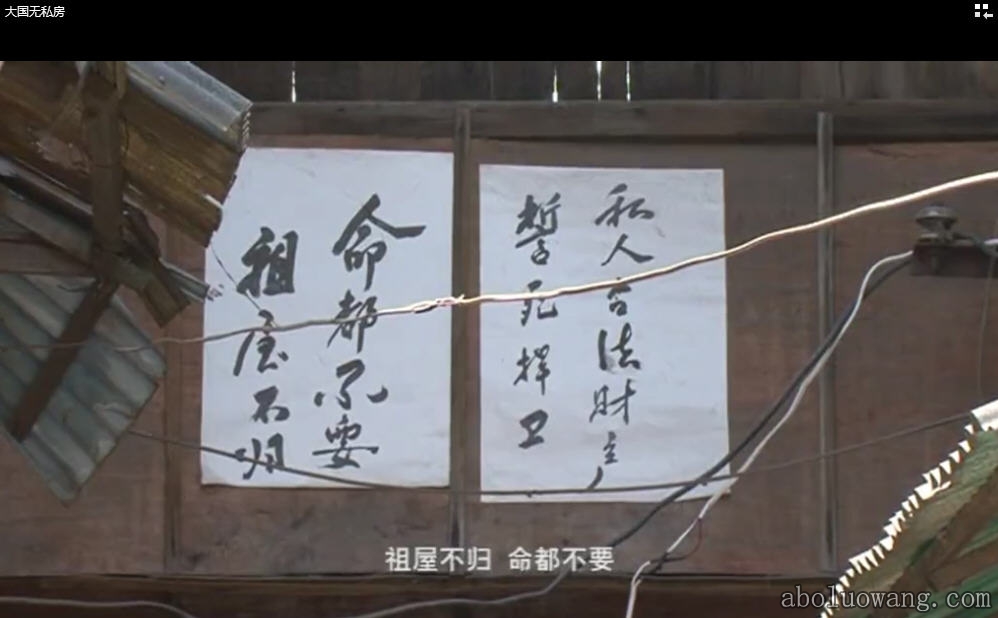 大国无私房
命都不要
祖屋不归
私人合法财产
誓死捍卫
祖屋不归 命都不要
aboluowang.com